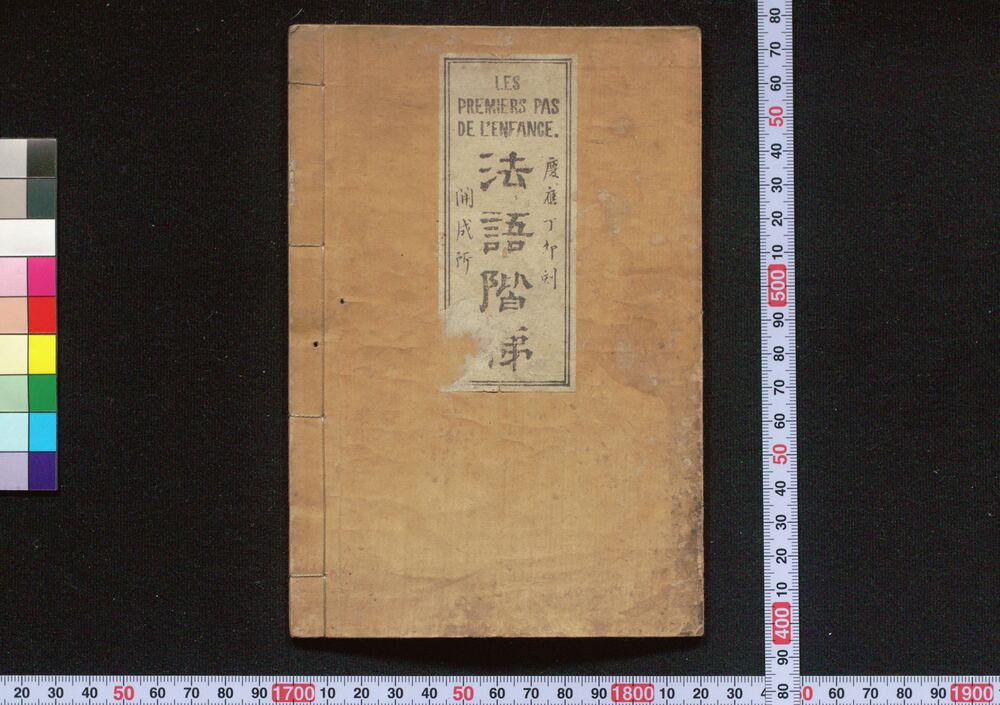 LES
PREMIERS PAS
DE L'ENFANCE.
慶應丁卯刻
法語階梯
開成所
80
70
60
50
40
30
20
10
500
90
80
70
60
50
40
30
20
10
400
90
80
20 30 40 50 60 70 80 90 1700 10 20 30 40 50 60 70 80 90 1800 10 20 30 4 0 60 70 80 90 1900